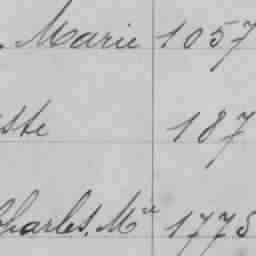 Marie 1057
ste 187
Charles, Mie 1775